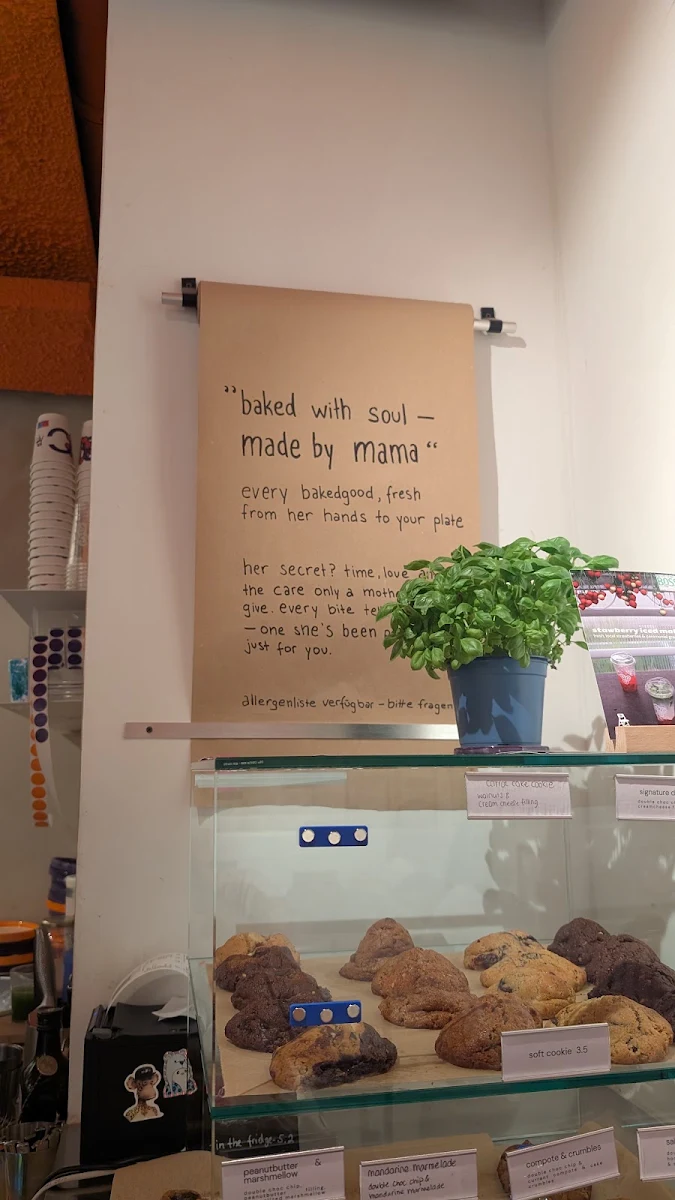 „baked with soul —
made by mama“
every bakedgood, fresh
from her hands to your plate
her secret? time, love
the care only a
give. every bite
— one she's been
just for you.
allergenliste verfügbar - bitte fragen
strawberry iced
carrot cake cookie
walnuts &
cream cheese filling
signature
double choc
soft cookie 3.5
in the fridge 5.2
peanutbutter &
marshmellow
double choc chip,
peanutbutter marshmellow filling,
mandarine marmelade
double choc chip &
mandarine marmelade
compote & crumbles
double choc chip &